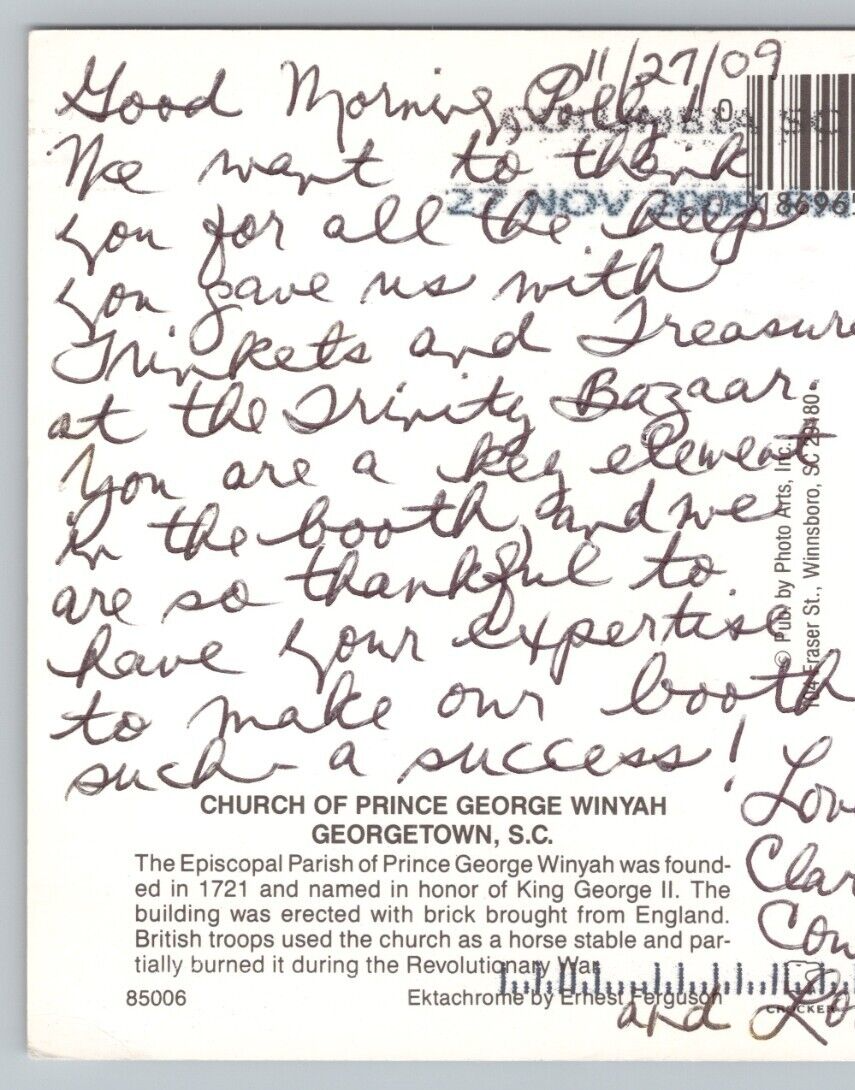 11/27/09
Good Morning, Polly!
COLUMBIA SC
We want to thank
27 NOV 2009
you for all the help
you gave us with
Trinkets and Treasure
at the Trinity Bazaar.
You are a key element
in the booth, and we
are so thankful to
have your expertise
to make our booth
such a success!
Lov
Clar
Con
and Lo
0
18696
© Pub. by Photo Arts, Inc.
104 Fraser St., Winnsboro, SC 29480
CHURCH OF PRINCE GEORGE WINYAH
GEORGETOWN, S.C.
The Episcopal Parish of Prince George Winyah was found-
ed in 1721 and named in honor of King George II. The
building was erected with brick brought from England.
British troops used the church as a horse stable and par-
tially burned it during the Revolutionary War.
85006 Ektachrome by Ernest Ferguson
CROCKER